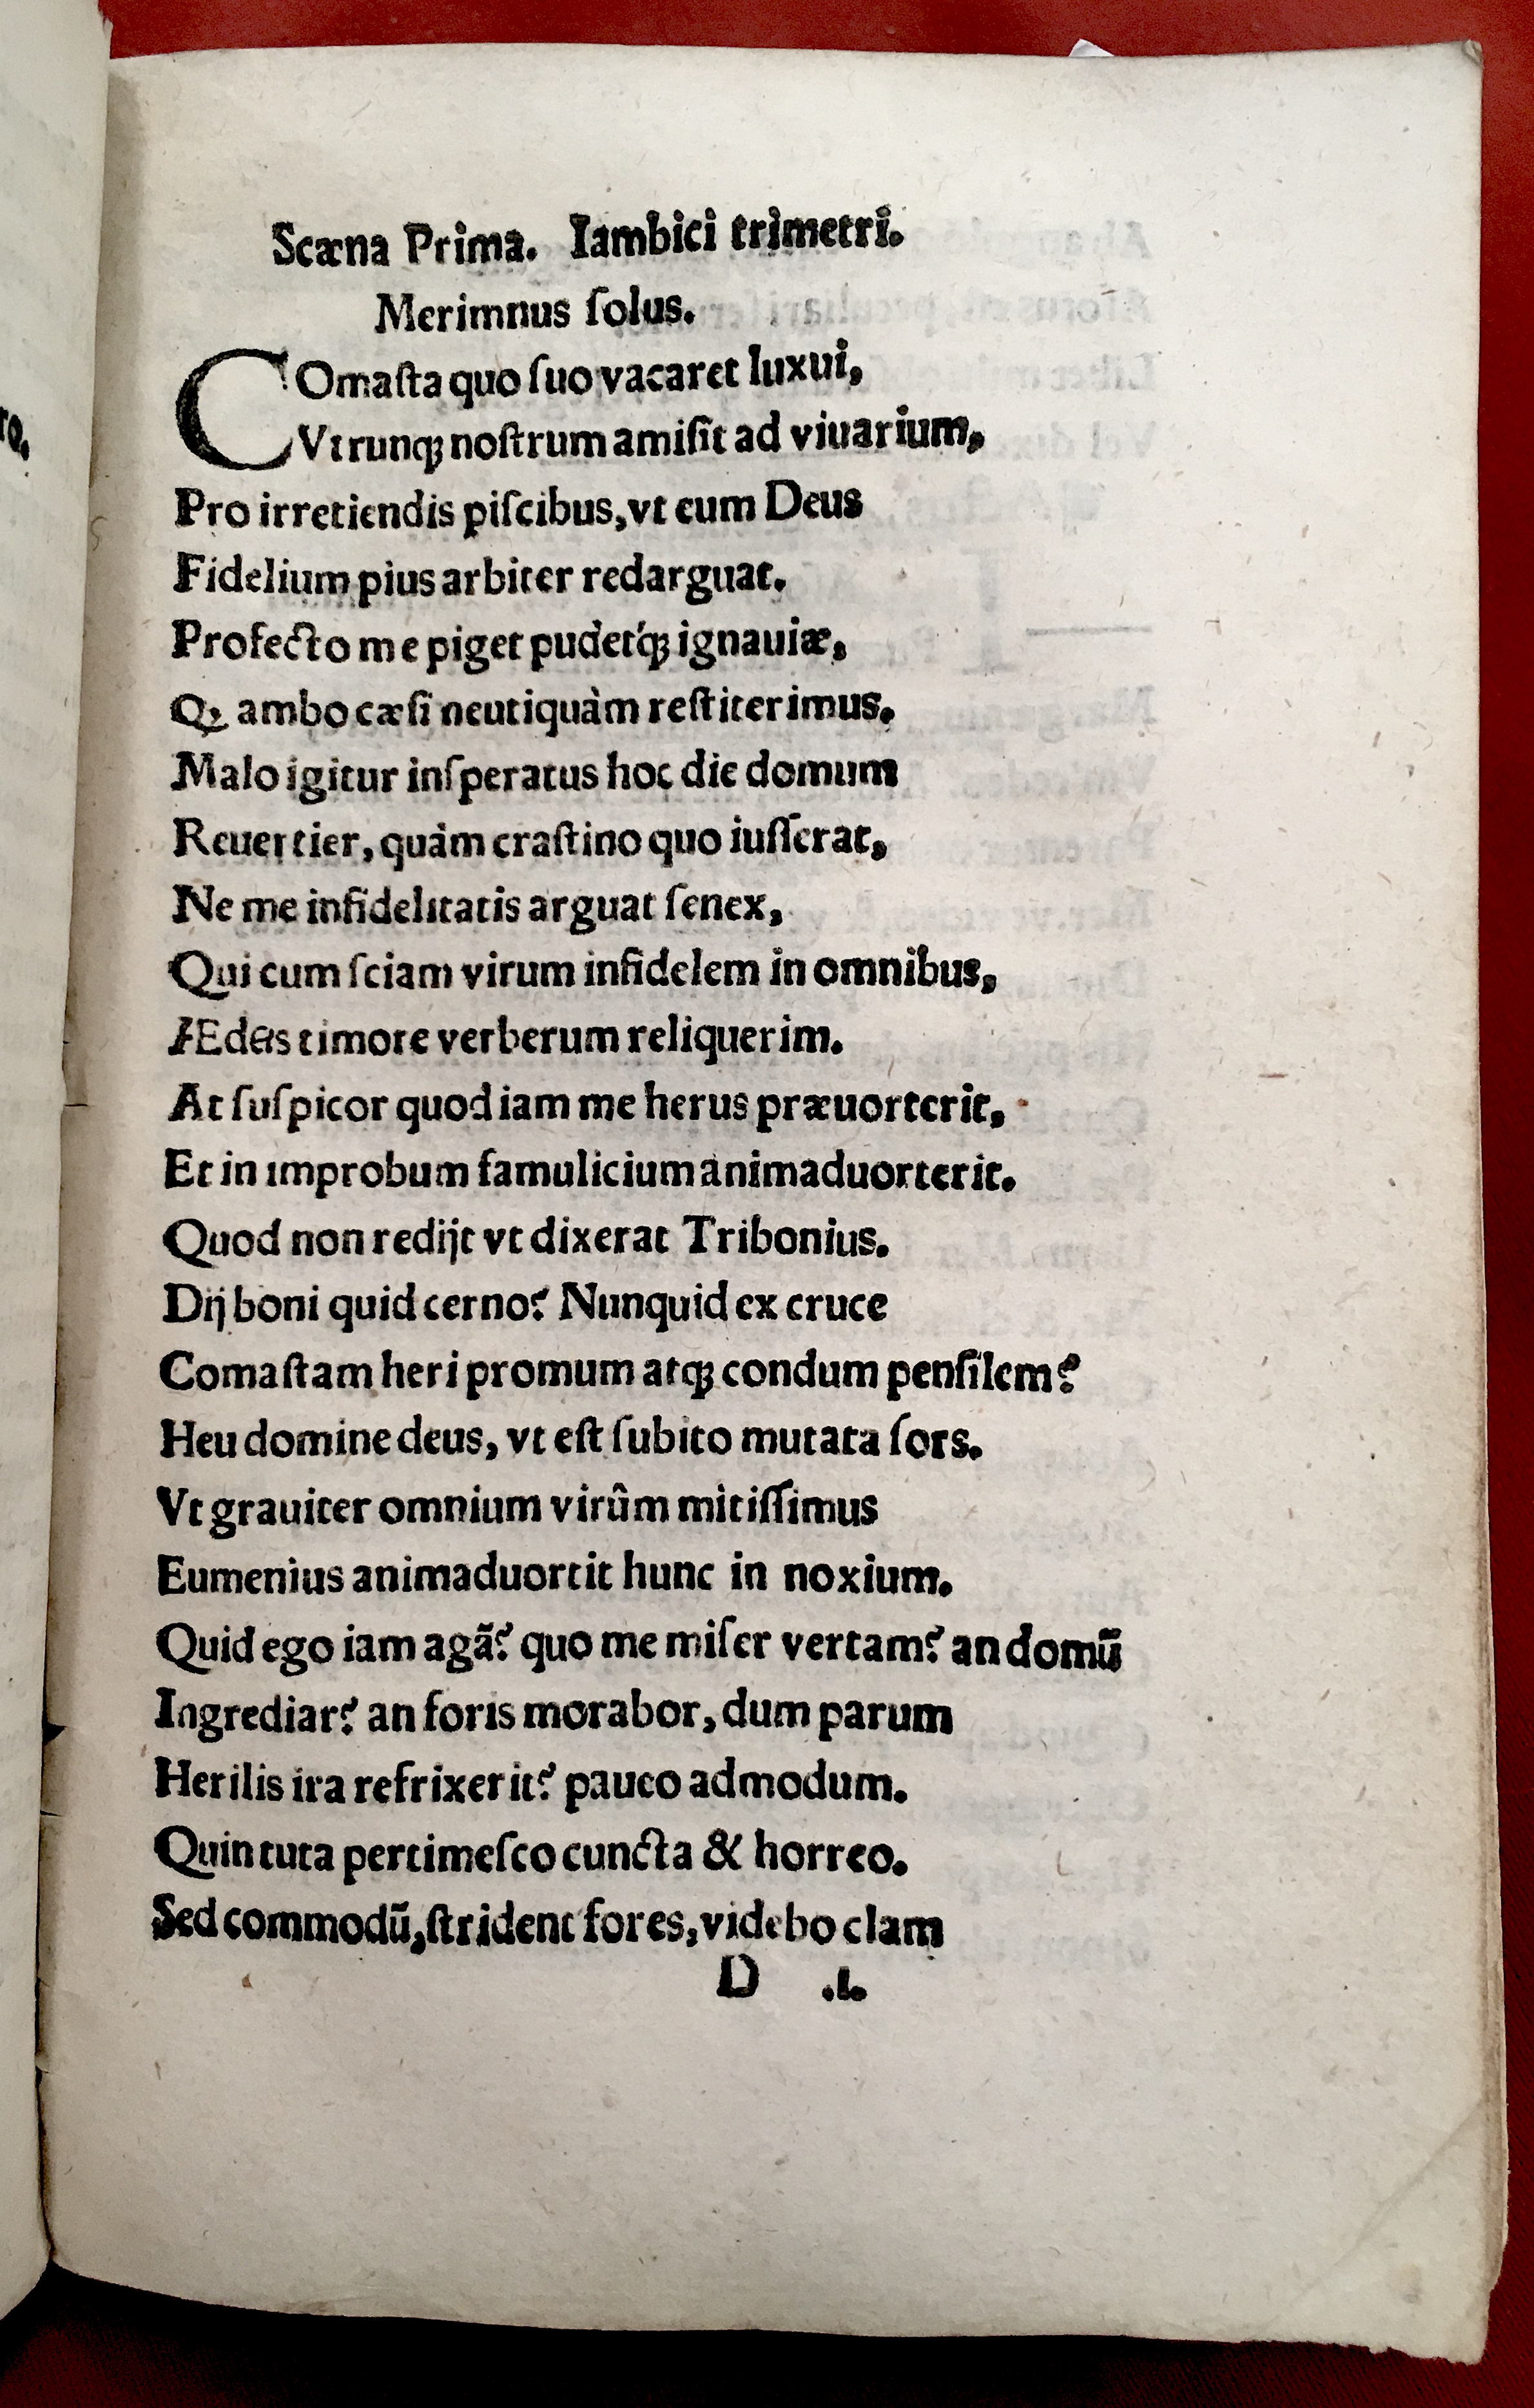 Scæna Prima. Iambici trimetri.
Merimnus ſolus.
COmaſta quo ſuo vacaret luxui,
Vtrunqꝫ noſtrum amiſit ad viuarium,
Pro irretiendis piſcibus, vt eum Deus
Fidelium pius arbiter redarguat.
Profecto me piget pudet´qꝫ ignauiæ,
Ꝙ ambo cæſi neutiquàm reſtiterimus.
Malo igitur inſperatus hoc die domum
Reuertier, quàm craſtino quo iuſſerat,
Ne me infidelitatis arguat ſenex,
Qui cum ſciam virum infidelem in omnibus,
Ædes timore verberum reliquerim.
At ſuſpicor quod iam me herus præuorterit,
Et in improbum famulicium animaduorterit.
Quod non redijt vt dixerat Tribonius.
Dij boni quid cerno? Nunquid ex cruce
Comaſtam heri promum atqꝫ condum penſilem?
Heu domine deus, vt eſt ſubito mutata ſors.
Vt grauiter omnium virûm mitiſſimus
Eumenius animaduortit hunc in noxium.
Quid ego iam agã? quo me miſer vertam? an domũ
Ingrediar? an foris morabor, dum parum
Herilis ira refrixerit? pauco admodum.
Quin tuta pertimeſco cuncta & horreo.
Sed commodũ, ſtrident fores, videbo clam
D .I.